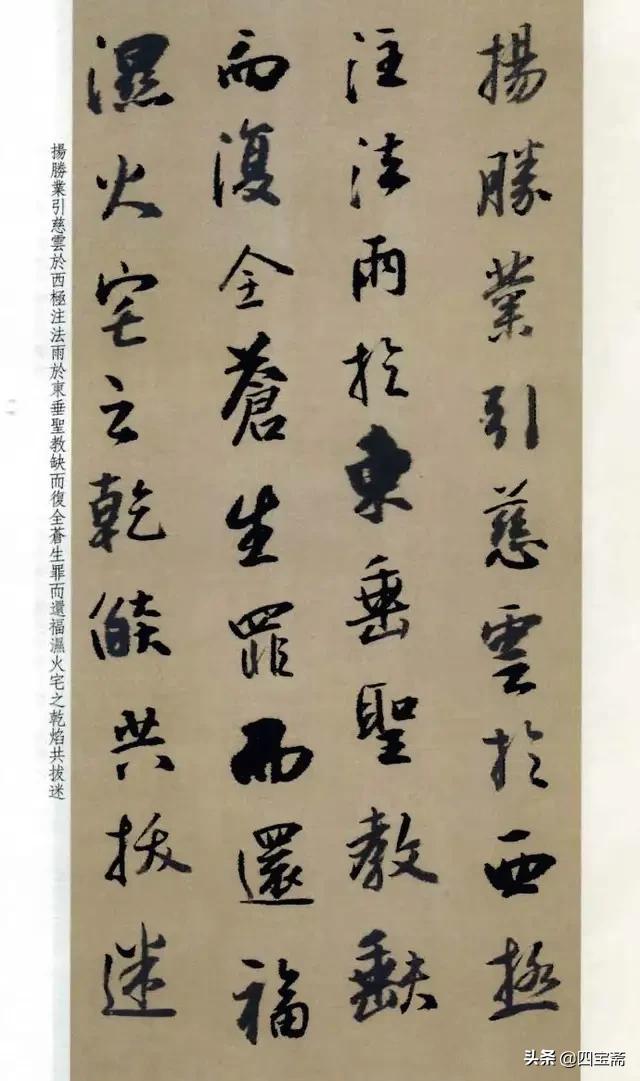 揚勝業引慈雲於西極
注法雨於東垂聖教缺
而復全蒼生罪而還福
濕火宅之乾焰共拔迷
揚勝業引慈雲於西極注法雨於東垂聖教缺而復全蒼生罪而還福濕火宅之乾焰共拔迷
头条 @四宝斋